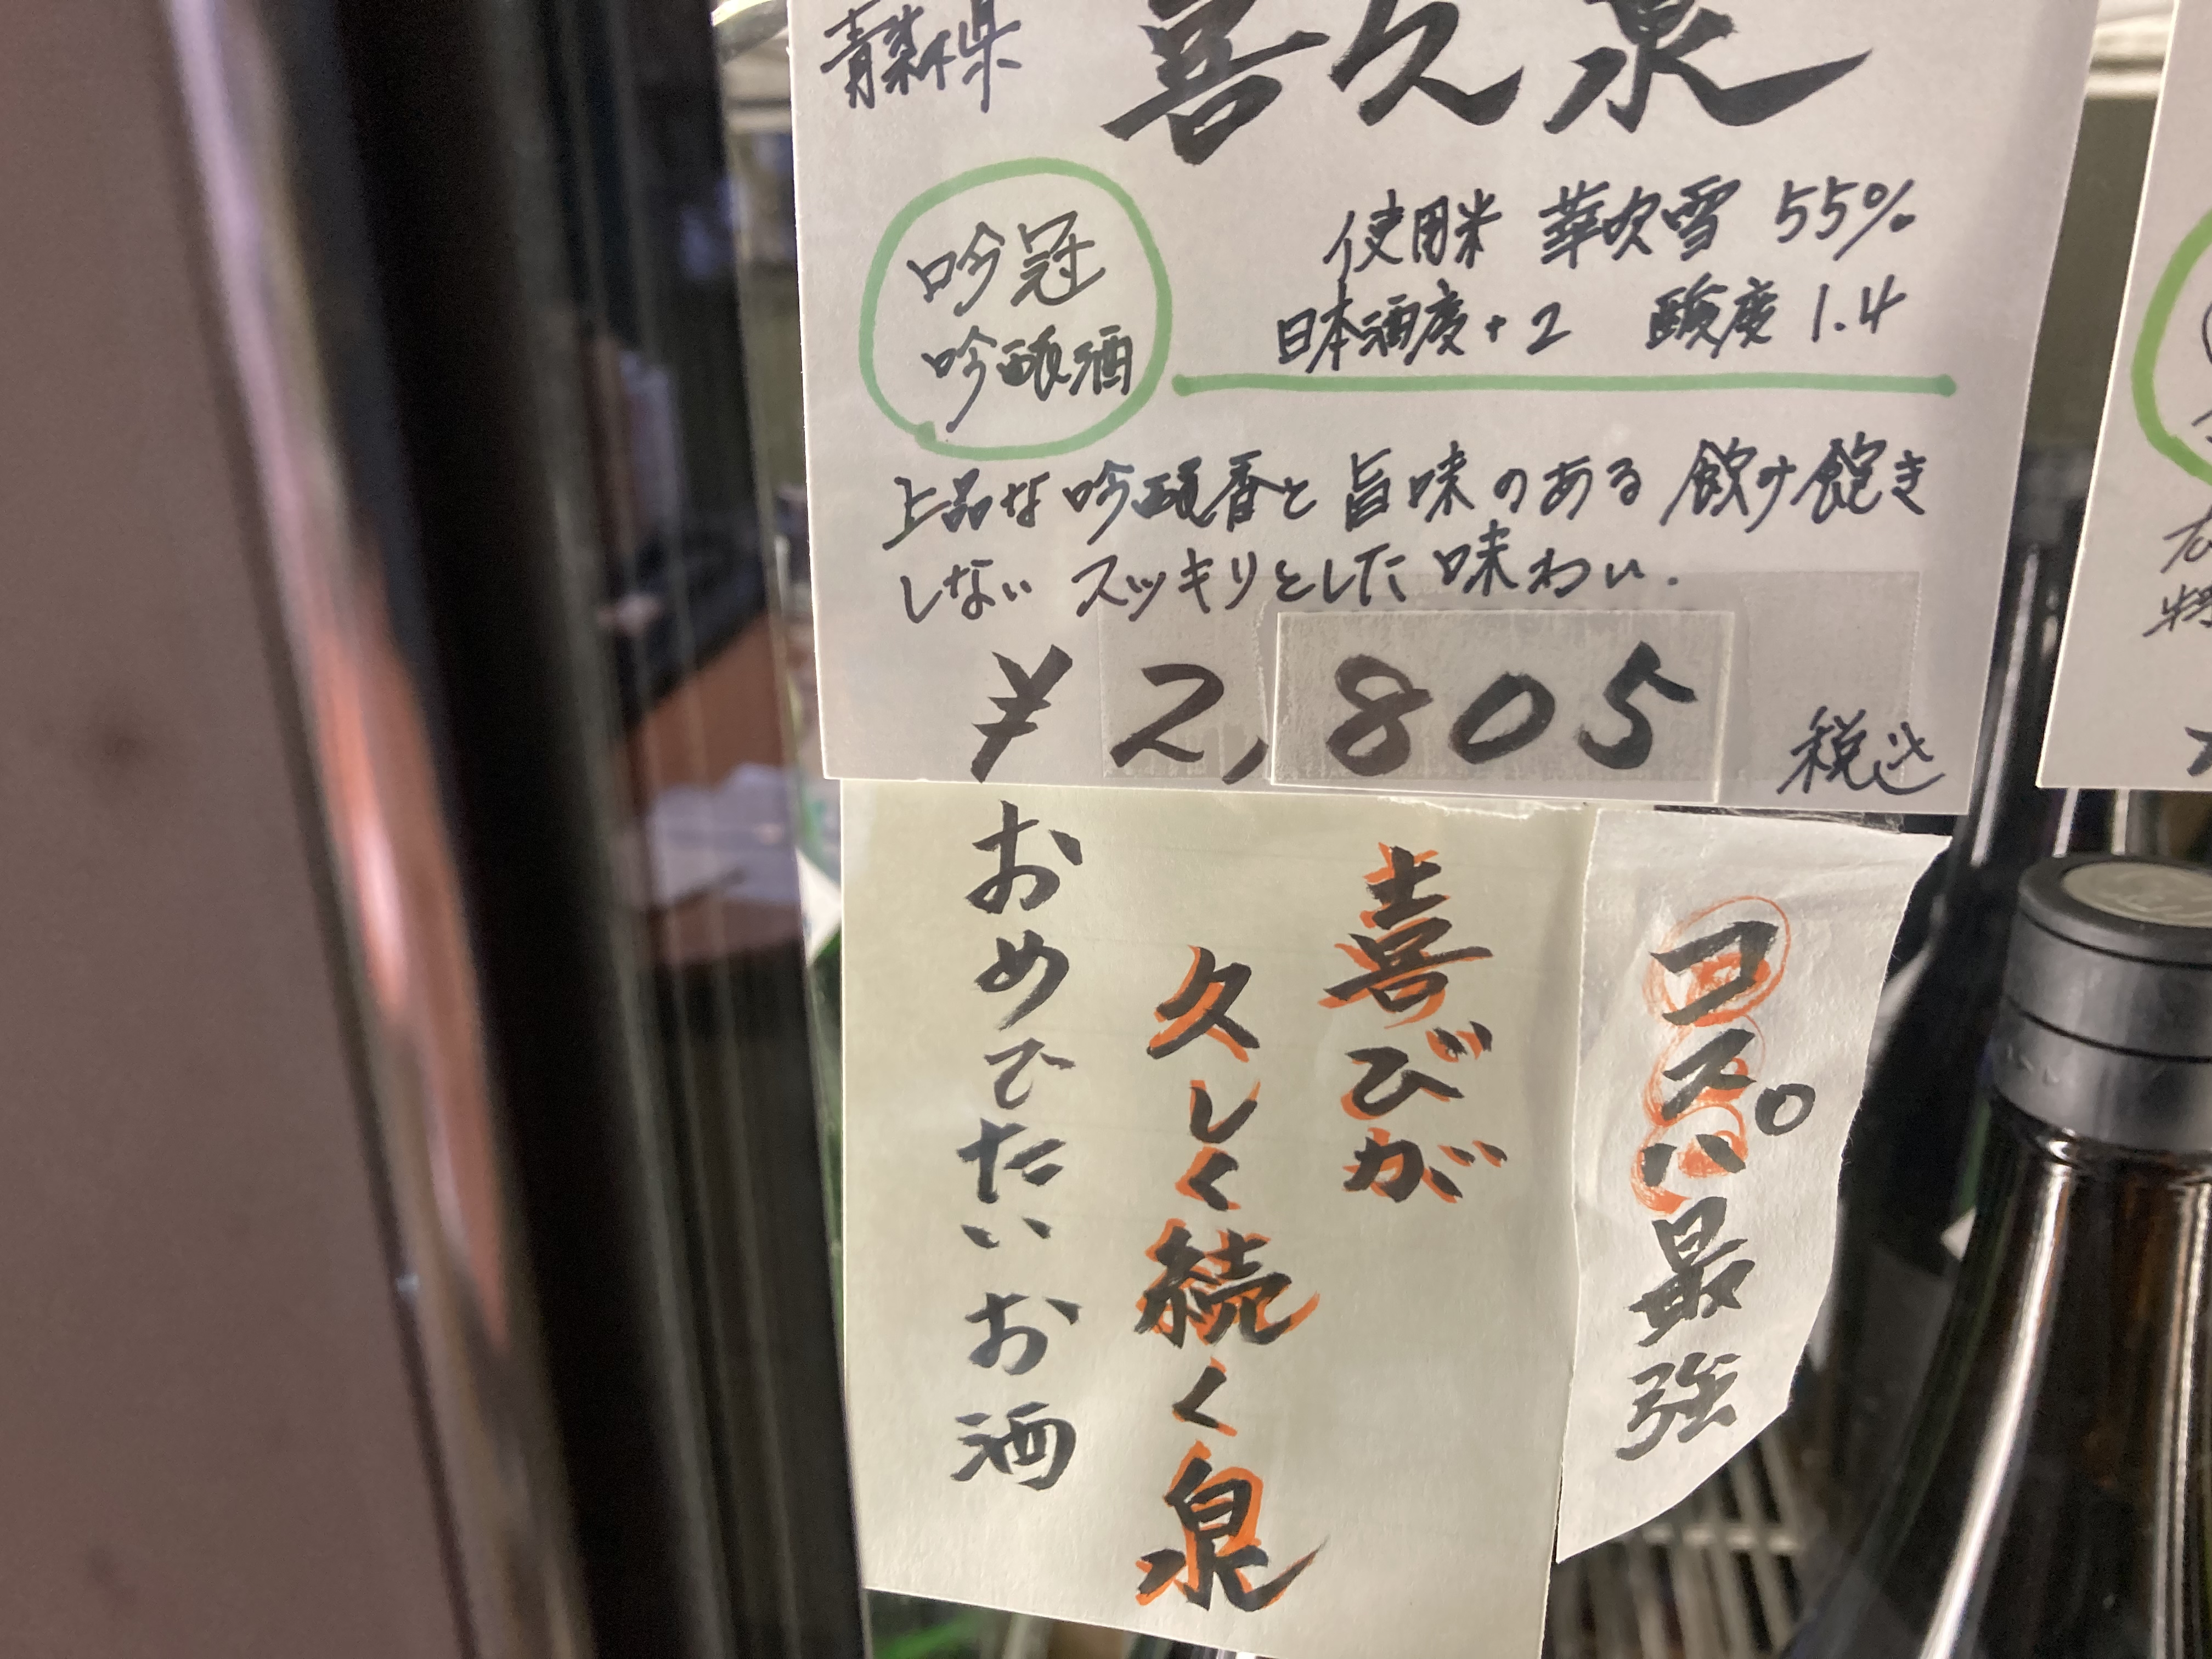 青森県
喜久泉
吟冠
吟醸酒
使用米 華吹雪 55%
日本酒度+2 酸度 1.4
上品な吟醸香と旨味のある飲み飽き
しない スッキリとした味わい.
¥2,805 税込
コスパ最強
喜びが
久しく続く泉
おめでたいお酒